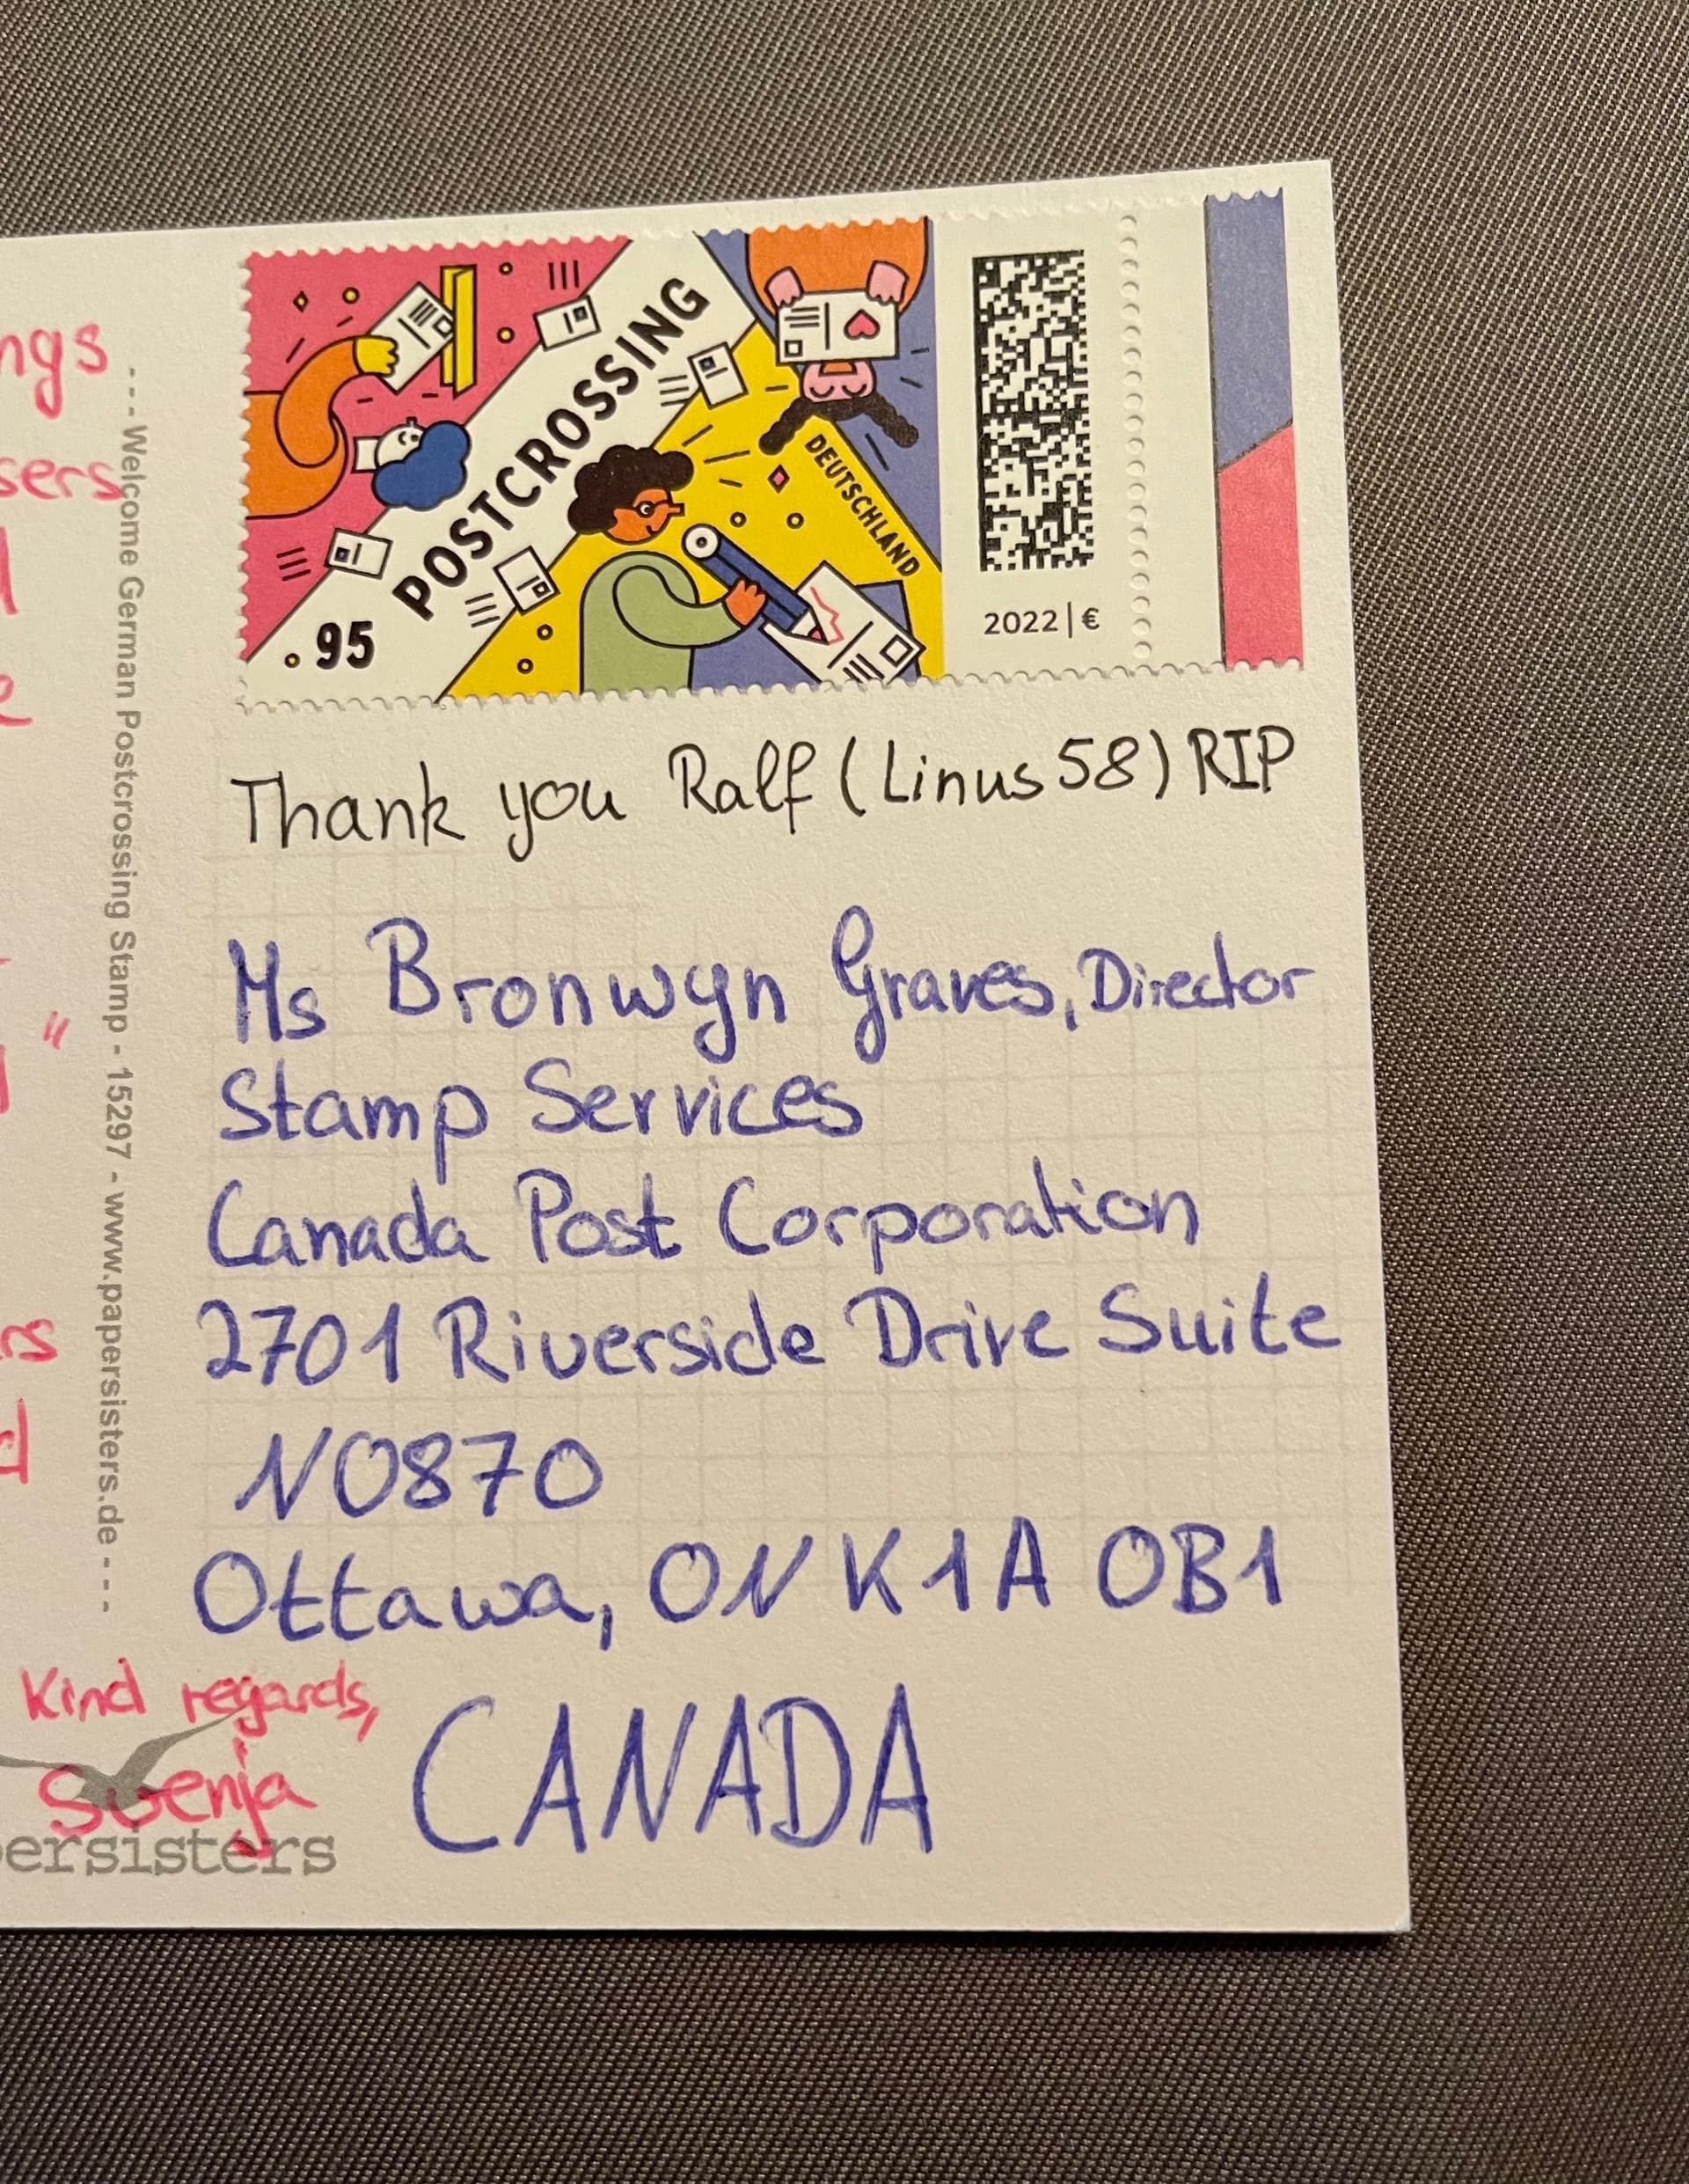 POSTCROSSING
DEUTSCHLAND
.95
2022 | €
Thank you Ralf (Linus58) RIP
Ms Bronwyn Graves, Director
Stamp Services
Canada Post Corporation
2701 Riverside Drive Suite
N0870
Ottawa, ON K1A 0B1
CANADA
--- Welcome German Postcrossing Stamp - 15297 - www.papersisters.de ---
ngs
sers
"
rs
d
Kind regards,
Svenja
ersisters